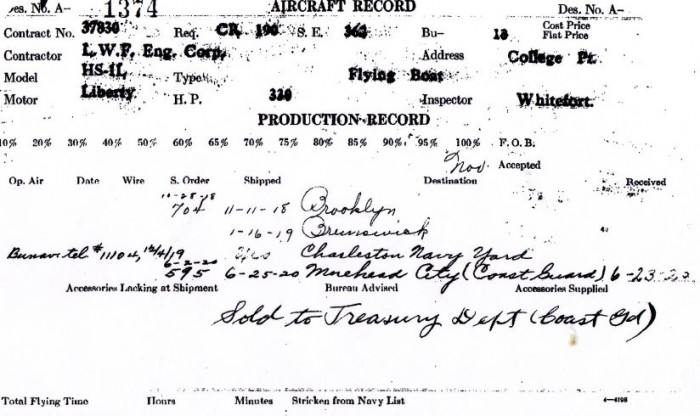 Des. No. A- 1374 AIRCRAFT RECORD Des. No. A-
Contract No. 37830 Req. CR 190 S. E. 360 Bu- 13 Cost Price
Flat Price
Contractor L.W.F. Eng. Corp. Address College Pt.
Model HS-1L Type Flying Boat
Motor Liberty H. P. 330 Inspector Whitefort.
PRODUCTION RECORD
10% 20% 30% 40% 50% 60% 65% 70% 75% 80% 85% 90% 95% 100% F. O. B.
Nov. Accepted
Op. Air Date Wire S. Order Shipped Destination Received
10-28-18
704 11-11-18 Brooklyn
1-16-19 Brunswick
Bunav tel #11104, 12/4/19 Charleston Navy Yard
6-2-20
595 6-25-20 Morehead City (Coast Guard) 6-23-20
Accessories Lacking at Shipment Bureau Advised Accessories Supplied
Sold to Treasury Dept (Coast Gd)
Total Flying Time Hours Minutes Stricken from Navy List 4-4198